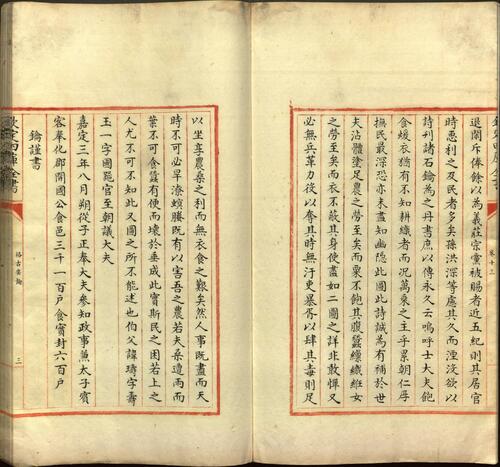 退閒斥俸餘以為義莊宗黨被賜者近五紀則其居官
時惠利之及民者多矣孫洪深等慮其久而湮沒欲以
詩刊諸石鑰為之丹書庶以傳永久云嗚呼士大夫飽
食煖衣猶有不知耕織者而況萬乘之主乎累朝仁厚
撫民最深恐亦未盡知幽隱此圖此詩誠為有補於世
夫沾體塗足農之勞至矣而粟不飽其腹蠶繅織維女
之勞至矣而衣不蔽其身使盡如二圖之詳非敢憚又
必無兵革力役以奪其時無汙吏暴胥以肆其毒則足
以坐享農桑之利而無衣食之艱矣然人事既盡而天
時不可必旱潦螟螣既有以害吾之農若夫桑遭雨而
葉不可食蠶有便而壞於垂成此實斯民之困若上之
人尤不可不知此又圖之所不能述也伯父諱璹字壽
玉一字國器官至朝議大夫
嘉定三年八月朔從子正奉大夫參知政事兼太子賓
客奉化郡開國公食邑三千一百戶食實封六百戶
鑰謹書
欽定四庫全書
格古要論
三